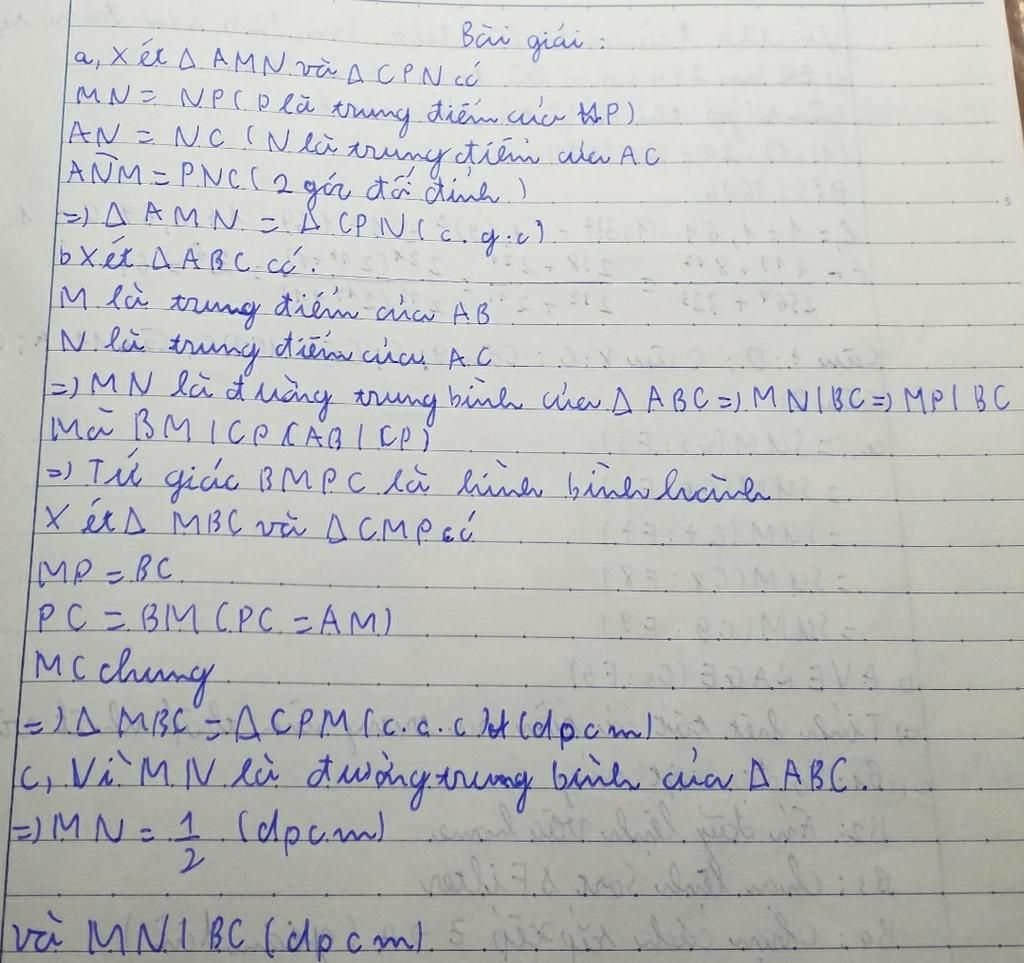 Bài giải:
a, Xét Δ AMN và Δ CPN có
MN = NP (P là trung điểm của MP)
AN = NC (N là trung điểm của AC
ANM = PNC (2 góc đối đỉnh)
=) Δ AMN = Δ CPN (c.g.c)
b Xét Δ ABC có:
M là trung điểm của AB
N là trung điểm của AC
=) MN là đường trung bình của Δ ABC =) MN | BC =) MP | BC
Mà BM | CP (AB | CP)
=) Tứ giác BMPC là hình bình hành
Xét Δ MBC và Δ CMP có
MP = BC
PC = BM (PC = AM)
MC chung
=) Δ MBC = Δ CPM (c.c.c) (dpcm)
c, Vì MN là đường trung bình của Δ ABC.
=) MN = 1/2 (dpcm)
và MN | BC (dpcm)